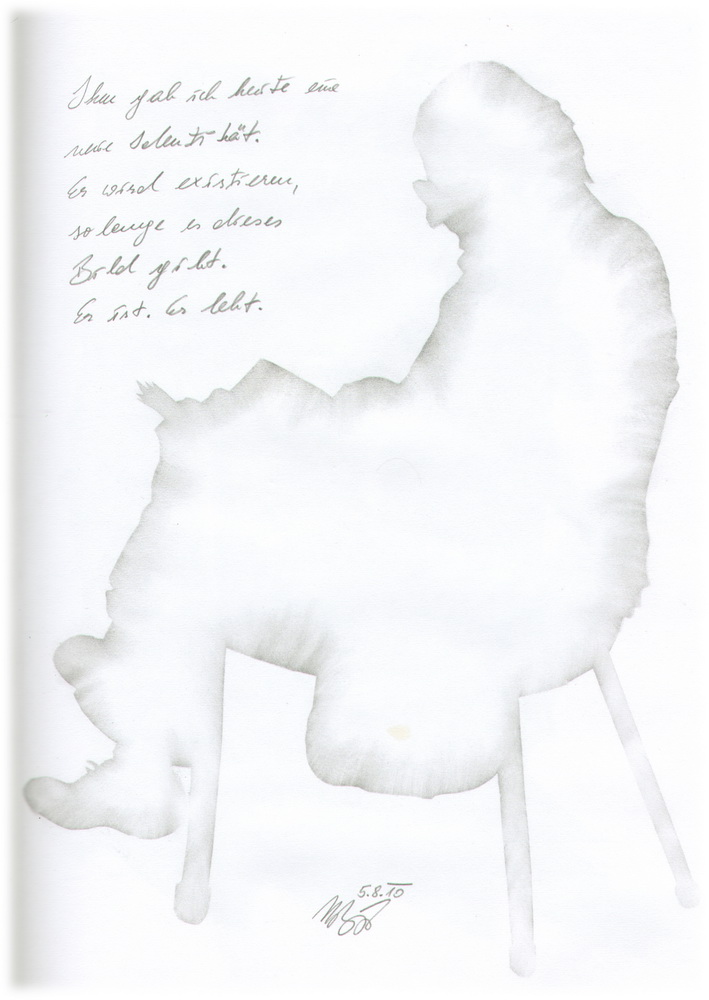 Ihm gab ich heute eine
neue Identität.
Er wird existieren,
solange es dieses
Bild gibt.
Er ist. Er lebt.
5.8.10